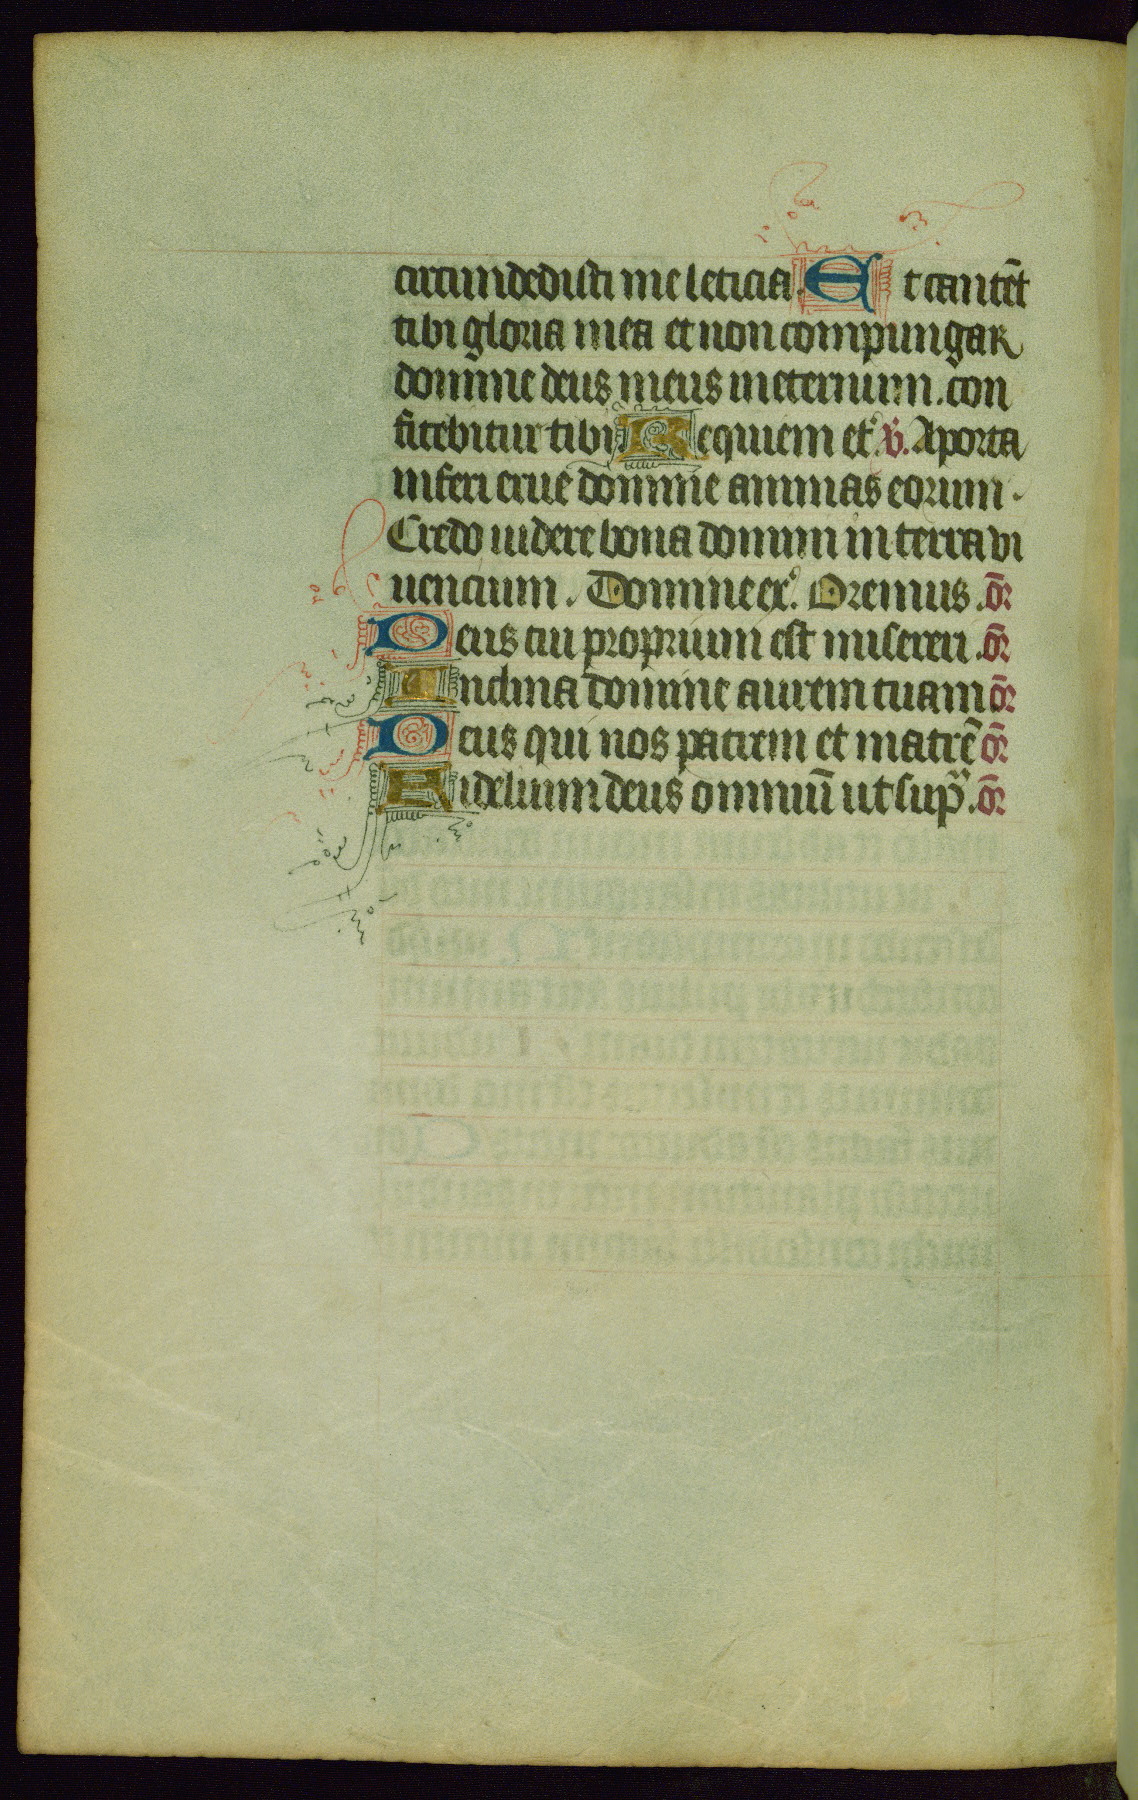 circumdedisti me leticia. Et cantēt
tibi gloria mea et non compungar
domine deus meus ineternum. con
fitebitur tibi Requiem et̛. ℣. Aporta
inferi erue domine animas eorum.
Credo uidere bona domini in terra vi
uencium. Domine ex̛. Oremus. or̄
Deus cui proprium est misereri. or̄
Inclina domine aurem tuam or̄
Deus qui nos patrem et matrē or̄
Fidelium deus omniū ut sup̄. or̄